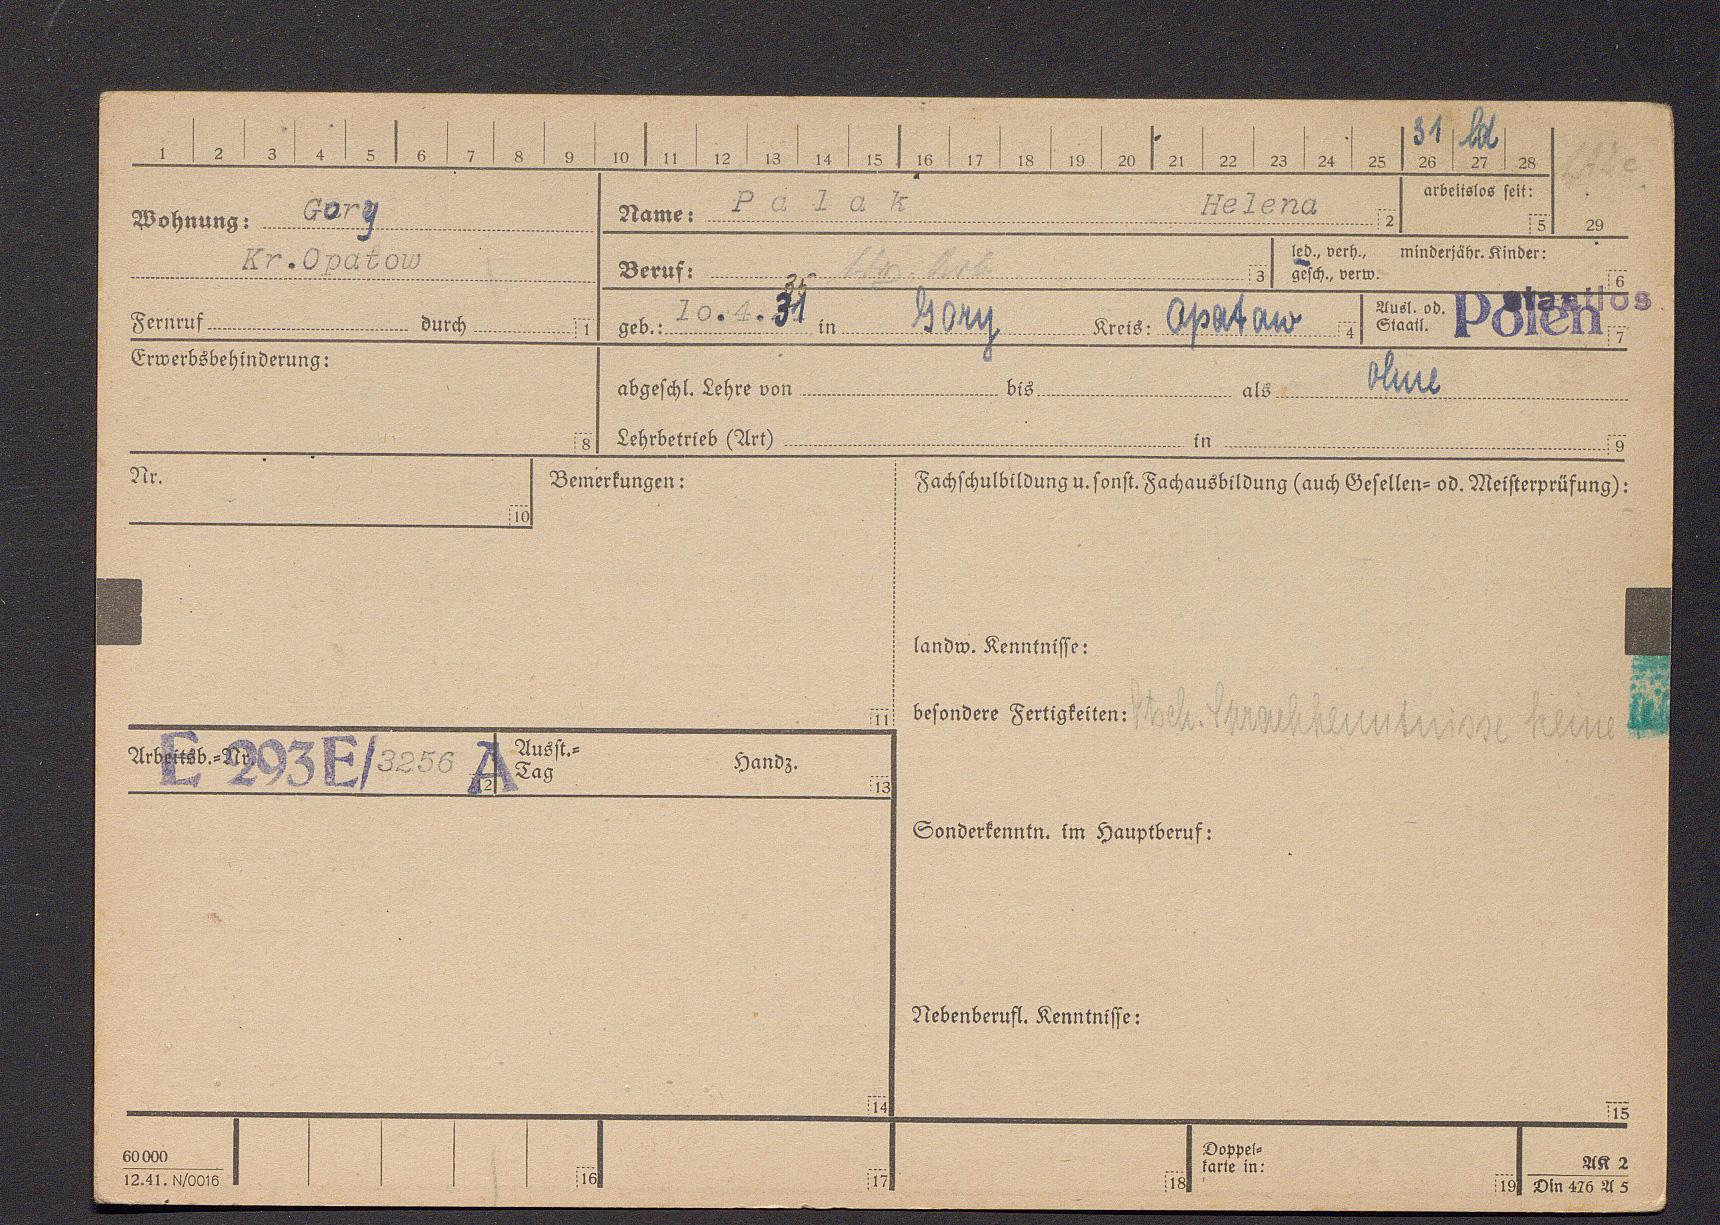 31 ld
1 2 3 4 5 6 7 8 9 10 11 12 13 14 15 16 17 18 19 20 21 22 23 24 25 26 27 28
Wohnung: Gory
Name: Palak Helena 2
arbeitslos seit: 5
29
Kr.Opatow
Beruf: 3
led., verh., minderjähr. Kinder:
gesch., verw. 6
35
Fernruf durch 1
geb.: 10.4.31 in Gory Kreis: Opatow 4
Ausl. od. Staatl. Polen staatlos 7
Erwerbsbehinderung: 8
abgeschl. Lehre von bis als ohne
Lehrbetrieb (Art) in 9
Nr. 10
Bemerkungen: 11
Fachschulbildung u. sonst. Fachausbildung (auch Gesellen= od. Meisterprüfung):
landw. Kenntnisse:
besondere Fertigkeiten: Dtsch. Sprachkenntnisse keine
Arbeitsb.=Nr. E 293E/3256 A 12
Ausst.=
Tag
Handz. 13
Sonderkenntn. im Hauptberuf:
Nebenberufl. Kenntnisse:
14
15
60 000
12.41. N/0016
16
17
18
Doppel=
karte in: 19
AK 2
Din 476 A 5